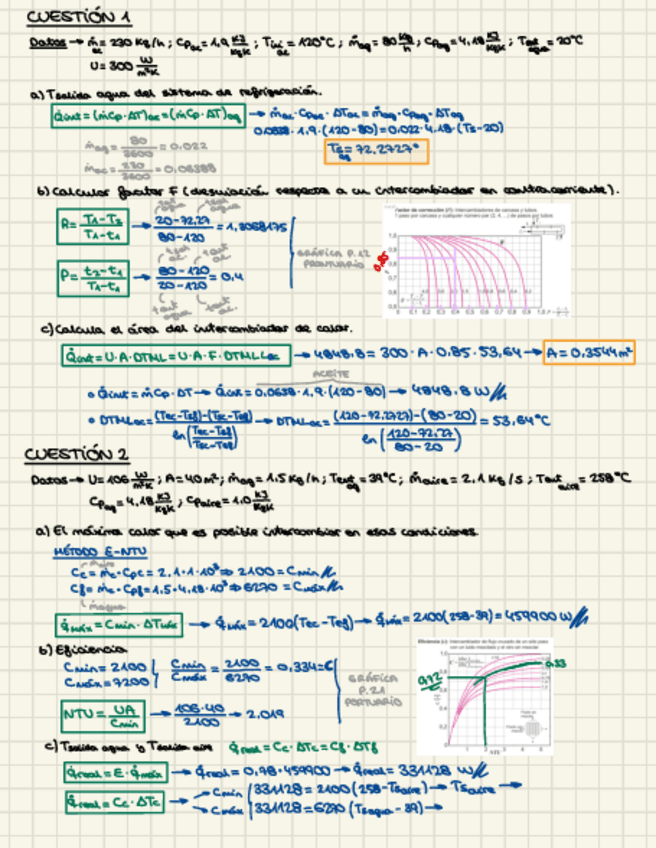 CUESTIÓN 1
Datos → ṁac = 230 Kg/h ; Cpac = 1,9 KJ/KgK ; Tac = 120°C ; ṁag = 80 Kg/h ; Cpag = 4,18 KJ/KgK ; Tagua = 20°C
U = 300 W/m²K
a) Tsalida agua del sistema de refrigeración.
Q̇int = (ṁCp·ΔT)ac = (ṁCp·ΔT)ag → ṁac·Cpac·ΔTac = ṁag·Cpag·ΔTag
0,0638·1,9·(120-80) = 0,022·4,18·(Ts-20)
ṁag = 80/3600 = 0,022
Tsag = 72,2727°
ṁac = 230/3600 = 0,06388
b) Calcular factor F (desviación respecto a un intercambiador en contracorriente).
R = T1-T2/T1-t1 → 20-72,27/80-120 = 1,3068175
P = t2-t1/T1-t1 → 80-120/20-120 = 0,4
tout agua
tout ac
GRÁFICA P.12
PRONTUARIO
Factor de corrección (F): Intercambiadores de carcasa y tubos.
1 paso por carcasa y cualquier número par (2, 4, ...) de pasos por tubos
0,85
c) Calcula el área del intercambiador de calor.
Q̇int = U·A·DTML = U·A·F·DTMLcc → 4848,8 = 300·A·0,85·53,64 → A = 0,3544 m²
ACEITE
• Q̇int = ṁCp·DT → Q̇int = 0,0638·1,9·(120-80) → 4848,8 W
• DTMLcc = (Tec-Tsf)-(Tsc-Tef)/ln(Tec-Tsf/Tsc-Tef) → DTMLcc = (120-72,2727)-(80-20)/ln(120-72,27/80-20) = 53,64°C
CUESTIÓN 2
Datos → U = 106 W/m²K ; A = 40 m² ; ṁag = 1,5 Kg/h ; Tentag = 39°C ; ṁaire = 2,1 Kg/s ; Tentaire = 258°C
Cpag = 4,18 KJ/KgK ; Cpaire = 1,0 KJ/KgK
a) El máximo calor que es posible intercambiar en esas condiciones
MÉTODO E-NTU
Cc = ṁc·Cpc = 2,1·1·10³ ⇒ 2100 = Cmin
Cf = ṁc·Cpf = 1,5·4,18·10³ ⇒ 6270 = Cmáx
q̇máx = Cmin·ΔTmáx → q̇máx = 2100(Tec-Tef) → q̇máx = 2100(258-39) = 459900 W
b) Eficiencia
Cmin = 2100
Cmáx = 7200
Cmin/Cmáx = 2100/6270 = 0,334 = C
NTU = UA/Cmin → 106·40/2100 → 2,019
GRÁFICA
P.21
PORTUARIO
0,72
0,33
c) Tsalida agua y Tsalida aire q̇real = Cc·ΔTc = Cf·ΔTf
q̇real = E·q̇máx → q̇real = 0,78·459900 → q̇real = 331128 W
q̇real = Cc·ΔTc → Cmin 331128 = 2100(258-Tsaire) → Tsaire →
Cmáx 331128 = 6270(Tsagua-39) →